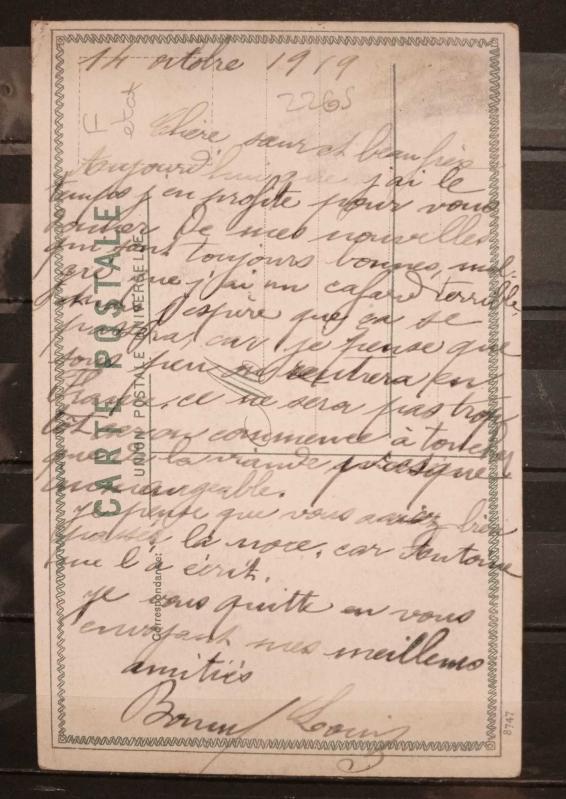 14 octobre 1919
2265
F
etat
Chère sœur et beau frère
aujourd'hui que j'ai le
temps j'en profite pour vous
donner de mes nouvelles
qui sont toujours bonnes, mal-
gré que j'ai un cafard terrible,
j'espère que ça se
passera, car je pense que
sous peu on rentrera en
France, ce ne sera pas trop
tôt car on commence à toucher
que de la viande presque
immangeable.
Je pense que vous aurez bien
passés la noce, car Antoine
me l'a écrit.
Je vous quitte en vous
envoyant mes meilleurs
amitiés
Louis
CARTE POSTALE
UNION POSTALE UNIVERSELLE
Correspondance:
8747